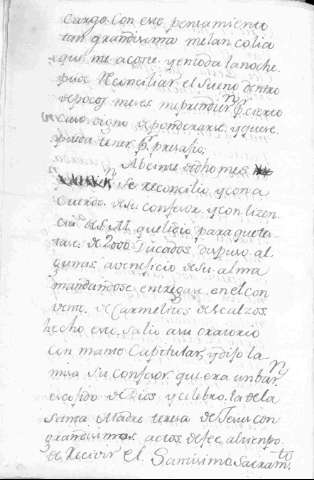 cargo con ese pensamiento
tan grandissima melancolia
que me acoste y en toda la noche
pude Reconciliar el sueño dentro
de pocos meses me prendieron
caso digno de ponderarse, y que se
pueda tener pr presagio.
A veinte de dho mes
Se reconcilio y con a
cuerdo de su confesor y con licen
cia de S. M. que le dio para que tes
tase de 2000 Ducados dispuso al
gunas a beneficio de su alma
mandandose entregar en el con
vento de Carmelitas descalzos
hecho eso, salio a su oratorio
con manto Capitular, y dixo la
misa su confesor que era un bar
de Dios y celebro la de la
Santa Madre teresa de Jesus con
grandisimos actos de fee, al tiempo
de Recivir el Santisimo Sacramto